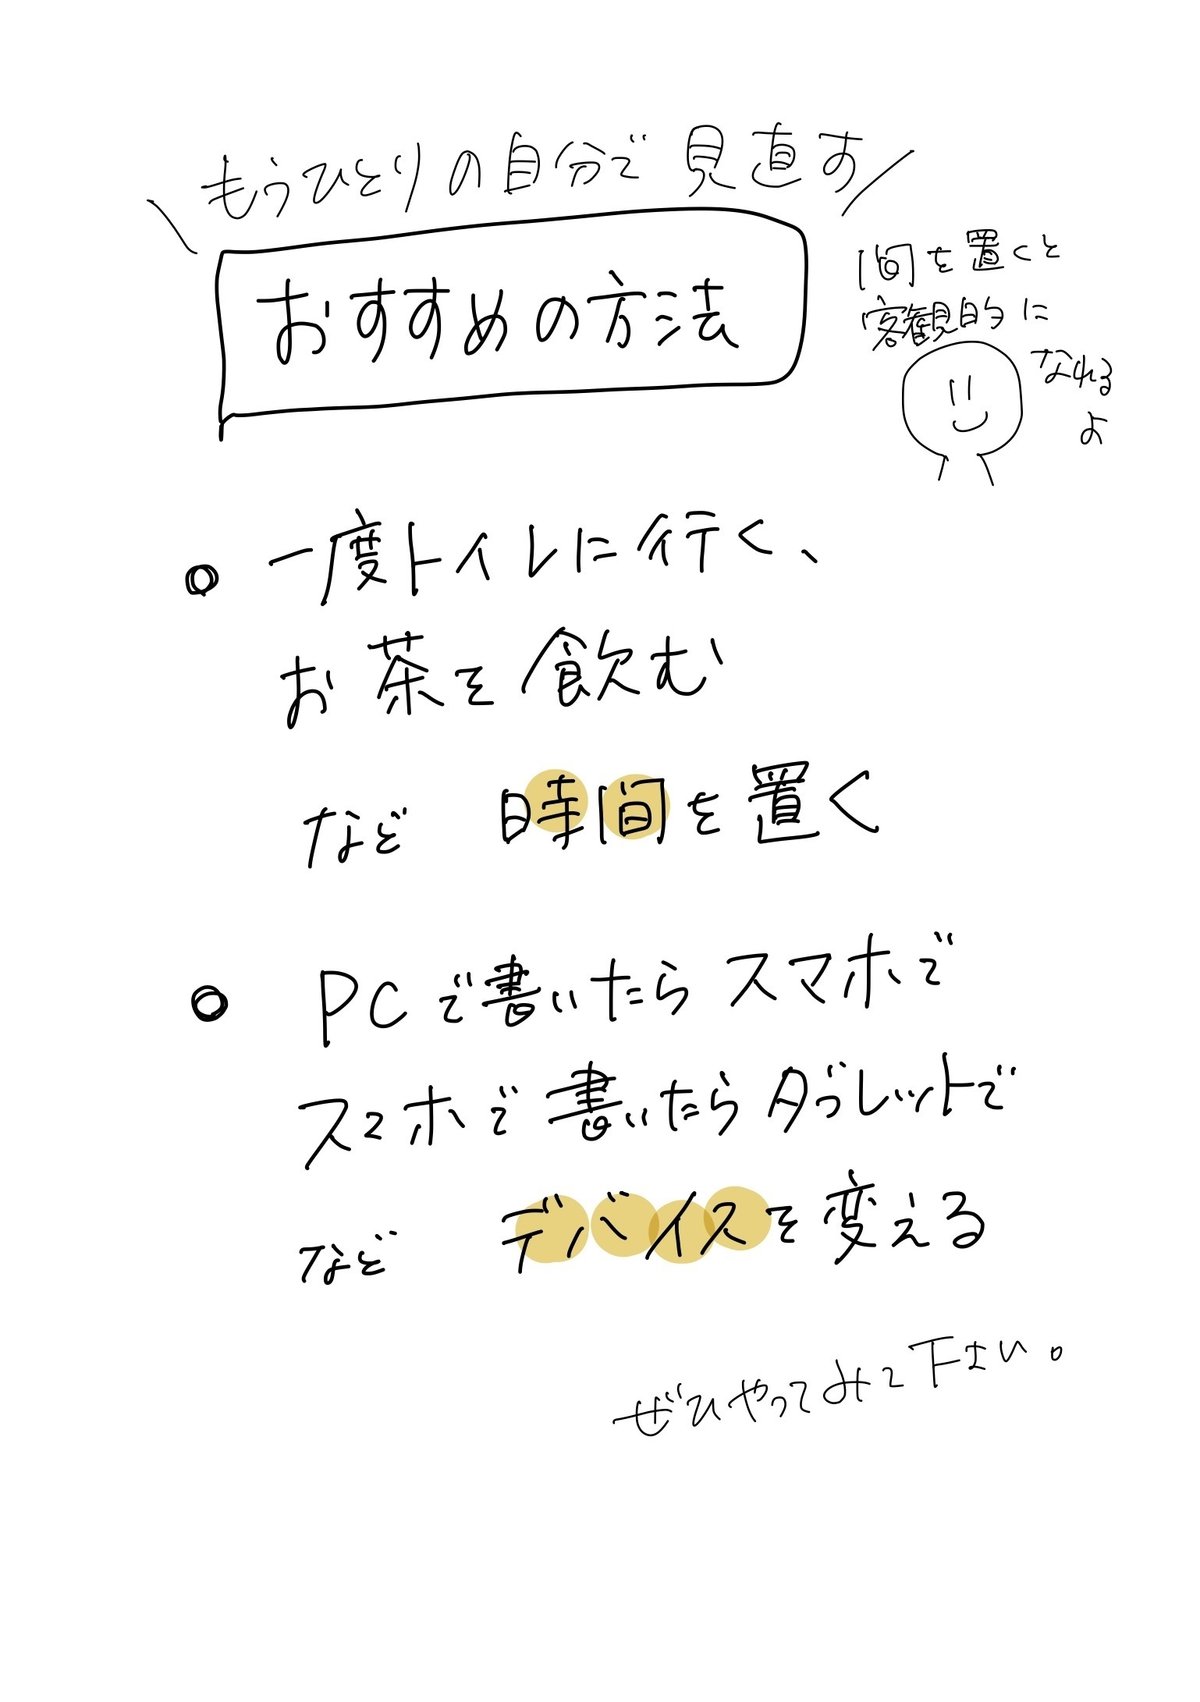 もうひとりの自分で見直す
おすすめの方法
間を置くと
客観的に
なれる
よ
一度トイレに行く、
お茶を飲む
など 時間を置く
PCで書いたらスマホで
スマホで書いたらタブレットで
など デバイスを変える
ぜひやってみて下さい。